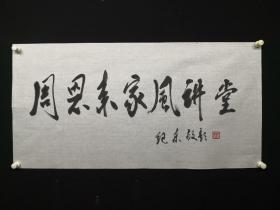 周恩来家風讲堂
纪东敬题